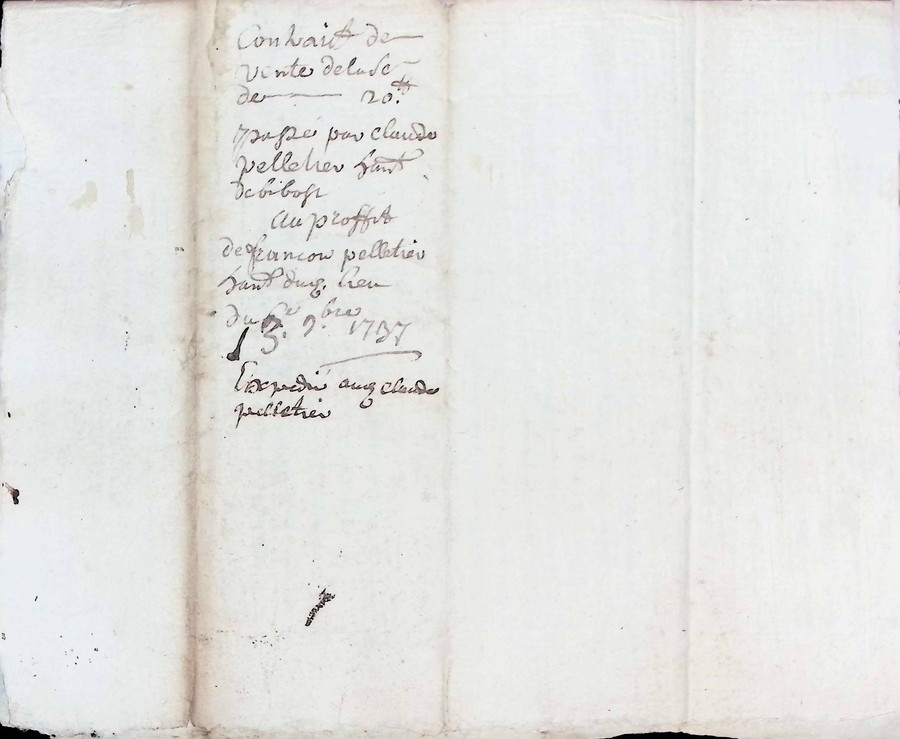 Contrait de
vente de la so
de — 20.tt
passé par claude
pelletier hant
de bibost
au proffit
de francois pelletier
hant dud. lieu
du 9bre 1737
Expedié aud claude
pelletier